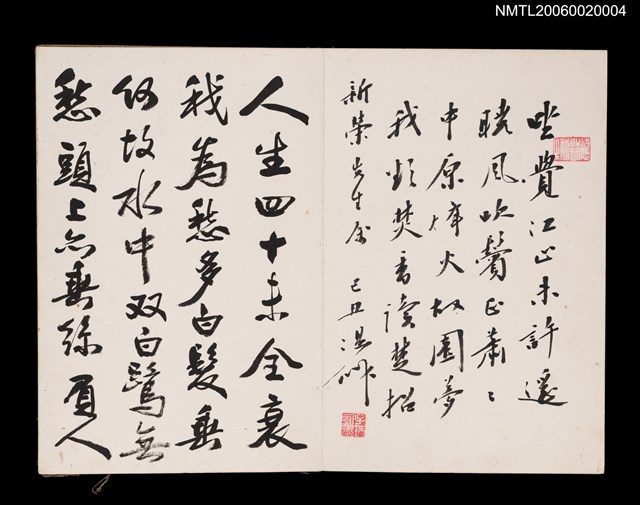 NMTL20060020004
坐覺江山未許
曉風吹鬢正蕭〻
中原烽火故園夢
我焚香讀楚招
新榮先生屬 己丑
人生四十未全衰
我為愁多白髮垂
何故水中双白鷺無
愁頭上亦垂絲 人